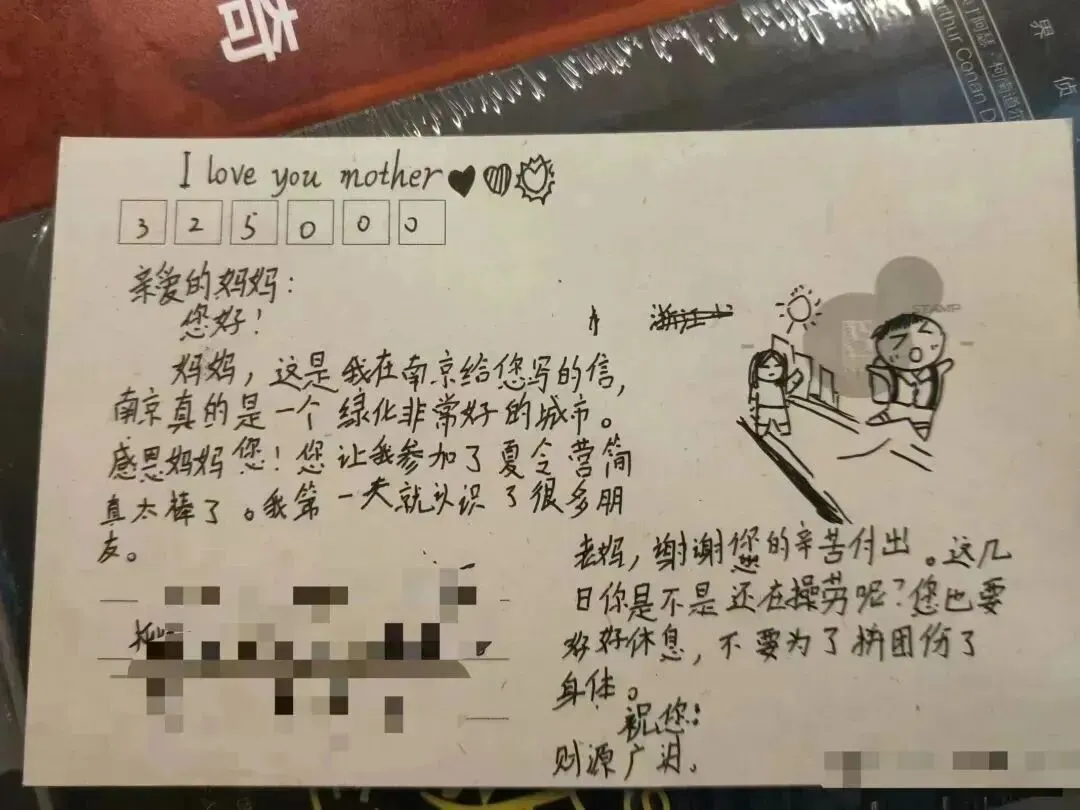 奇
阿瑟·柯南道尔
Arthur Conan D
界 侦
I love you mother
3 2 5 0 0 0
亲爱的妈妈：
您好！
妈妈，这是我在南京给您写的信，
南京真的是一个绿化非常好的城市。
感恩妈妈您！您让我参加了夏令营简
真太棒了。我第一天就认识了很多朋
友。
浙江
STAMP
老妈，谢谢您的辛苦付出。这几
日你是不是还在操劳呢？您也要
好好休息，不要为了拼团伤了
身体。
祝您：
财源广进.